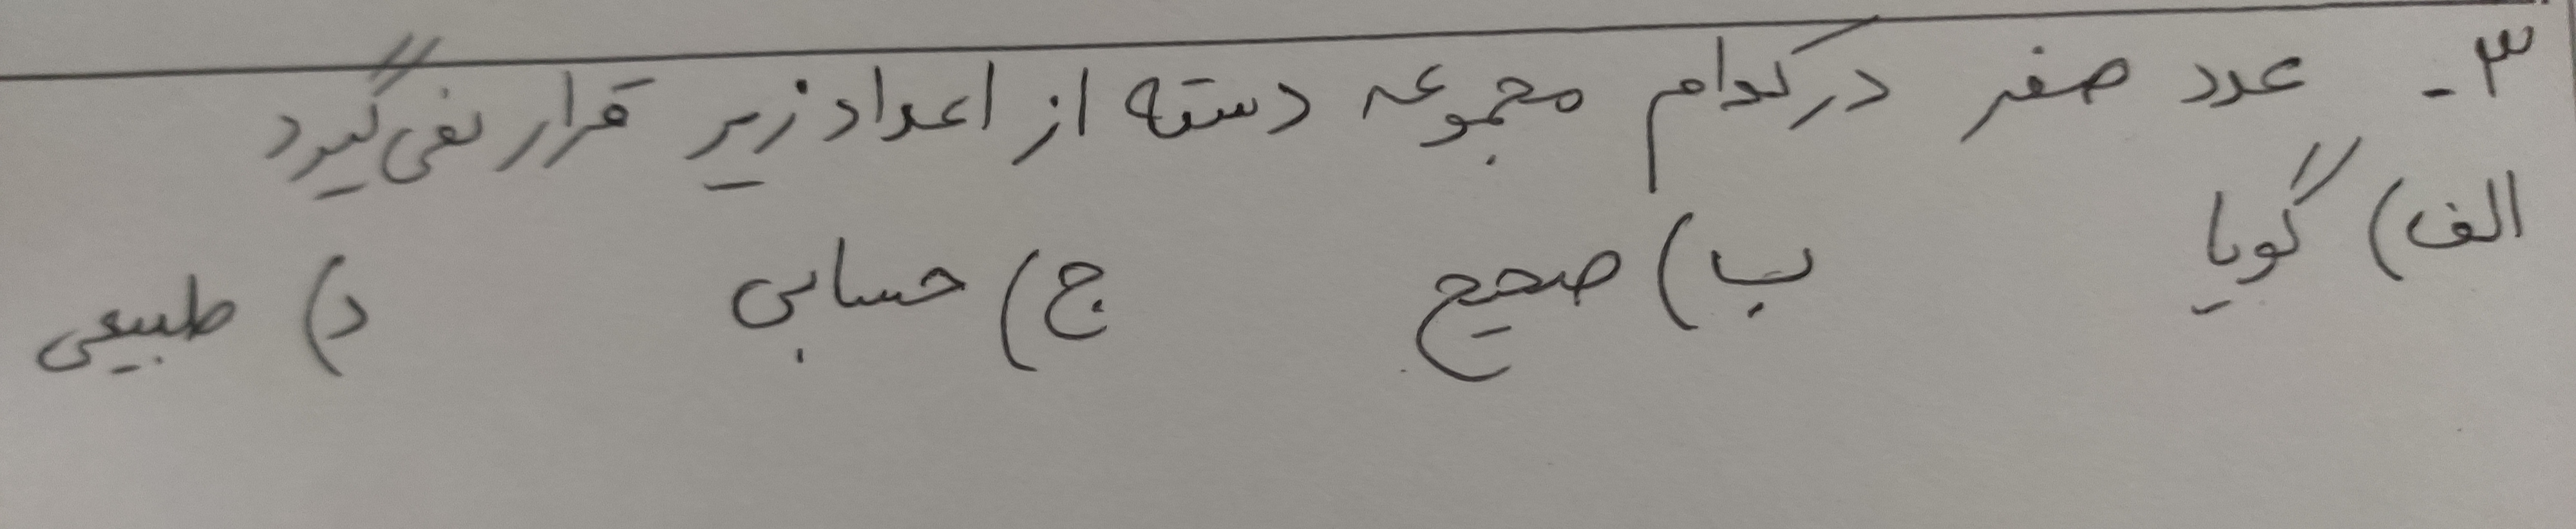 ۳- عدد صفر در کدام مجموعه دسته از اعداد زیر قرار نمی‌گیرد
الف) گویا ب) صحیح ج) حسابی د) طبیعی